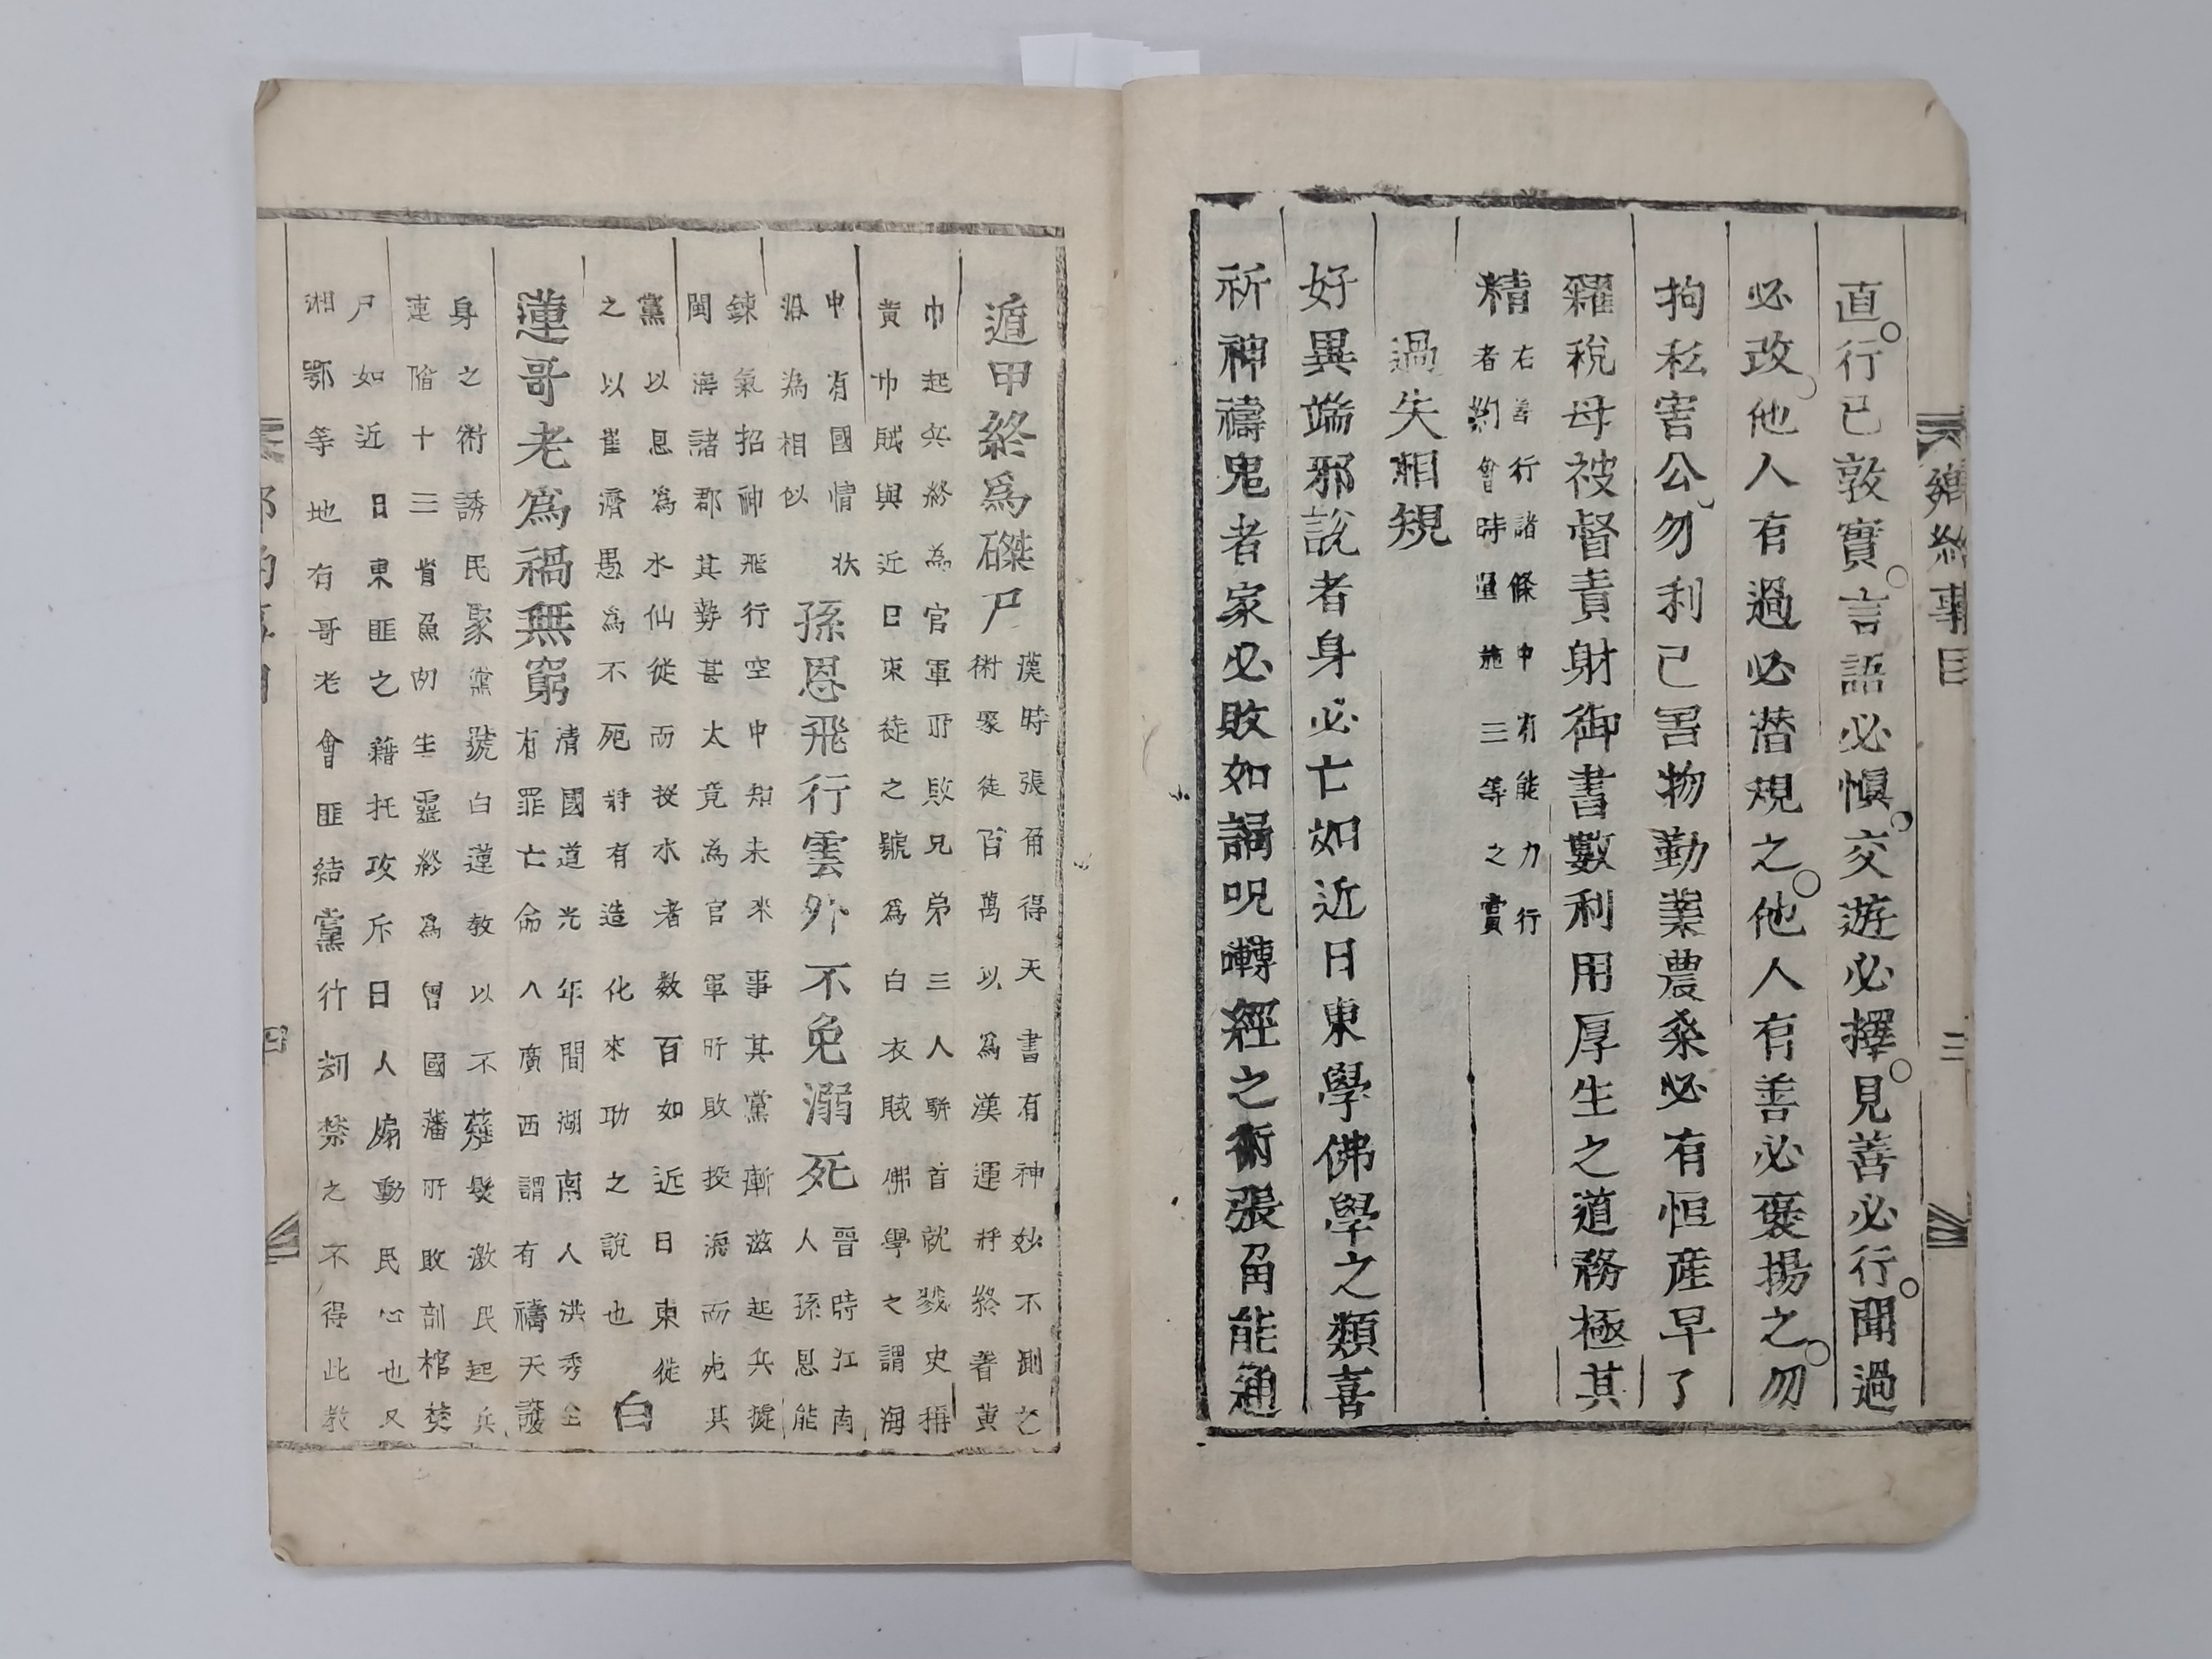 直行已敦實言語必愼交遊必擇見善必行聞過
必改他人有過必潛規之他人有善必褒揚之勿
拘私害公勿利己害物勤業農桑必有恒産早了
糴稅毋被督責射御書數利用厚生之道務極其
精
右善行諸條中有能力行
者約會時選施三等之賞
過失相規
好異端邪說者身必亡如近日東學佛學之類喜
祈神禱鬼者家必敗如誦呪囀經之術張角能通
鄕約事目
三
遁甲終爲磔尸
漢時張角得天書有神妙不測之
術聚徒百萬以爲漢運將終著黃
巾起兵終為官軍所敗兄弟三人騈首就戮史稱
黃巾賊與近日東徒之號爲白衣賊佛學之謂海
中有國情狀
沿為相似
孫恩飛行雲外不免溺死
晉時江南
人孫恩能
鍊氣招神飛行空中知未來事其黨漸滋起兵據
閩海諸郡其勢甚太竟為官軍所敗投海而死其
黨以恩爲水仙從而投水者数百如近日東徒
之以崔濟愚為不死將有造化來功之說也
白
蓮哥老爲禍無窮
清國道光年間湖南人洪秀全
有罪亡命入廣西謂有禱天護
身之術誘民聚黨號白蓮教以不薙髮激民起兵
連陷十三省魚肉生靈終爲曾國藩所敗剖棺焚
尸如近日東匪之藉托攻斥日人煽動民心也又
湘鄂等地有哥老會匪結黨行刼禁之不得此教
鄕約事目
四